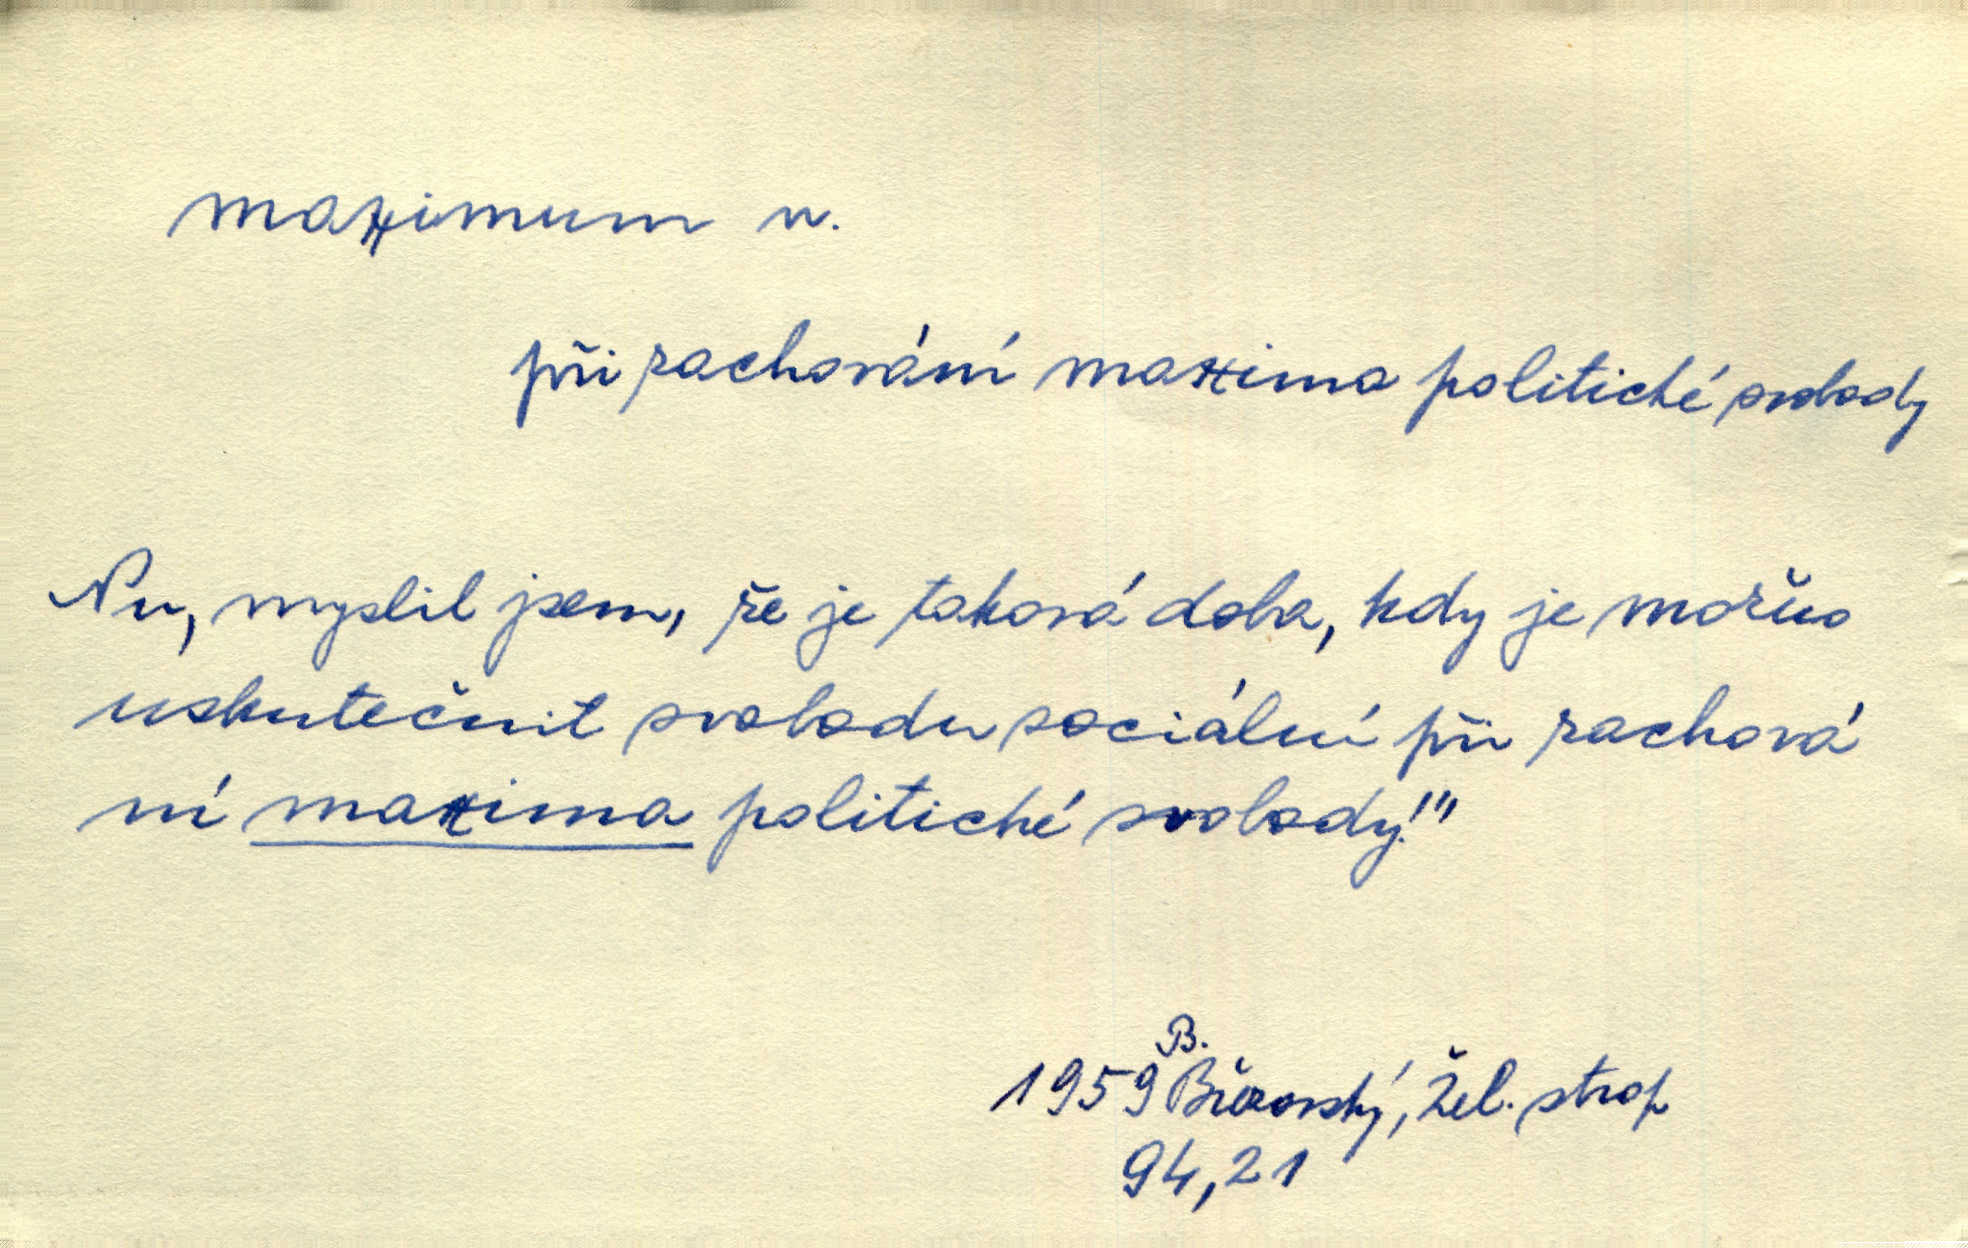 maximum n.
při zachování maxima politické svobody
Nu, myslil jsem, že je taková doba, kdy je možno
uskutečnit svobodu sociální při zachová
ní maxima politické svobody!"
B.
1959 Březovský, Žel. strop
94,21